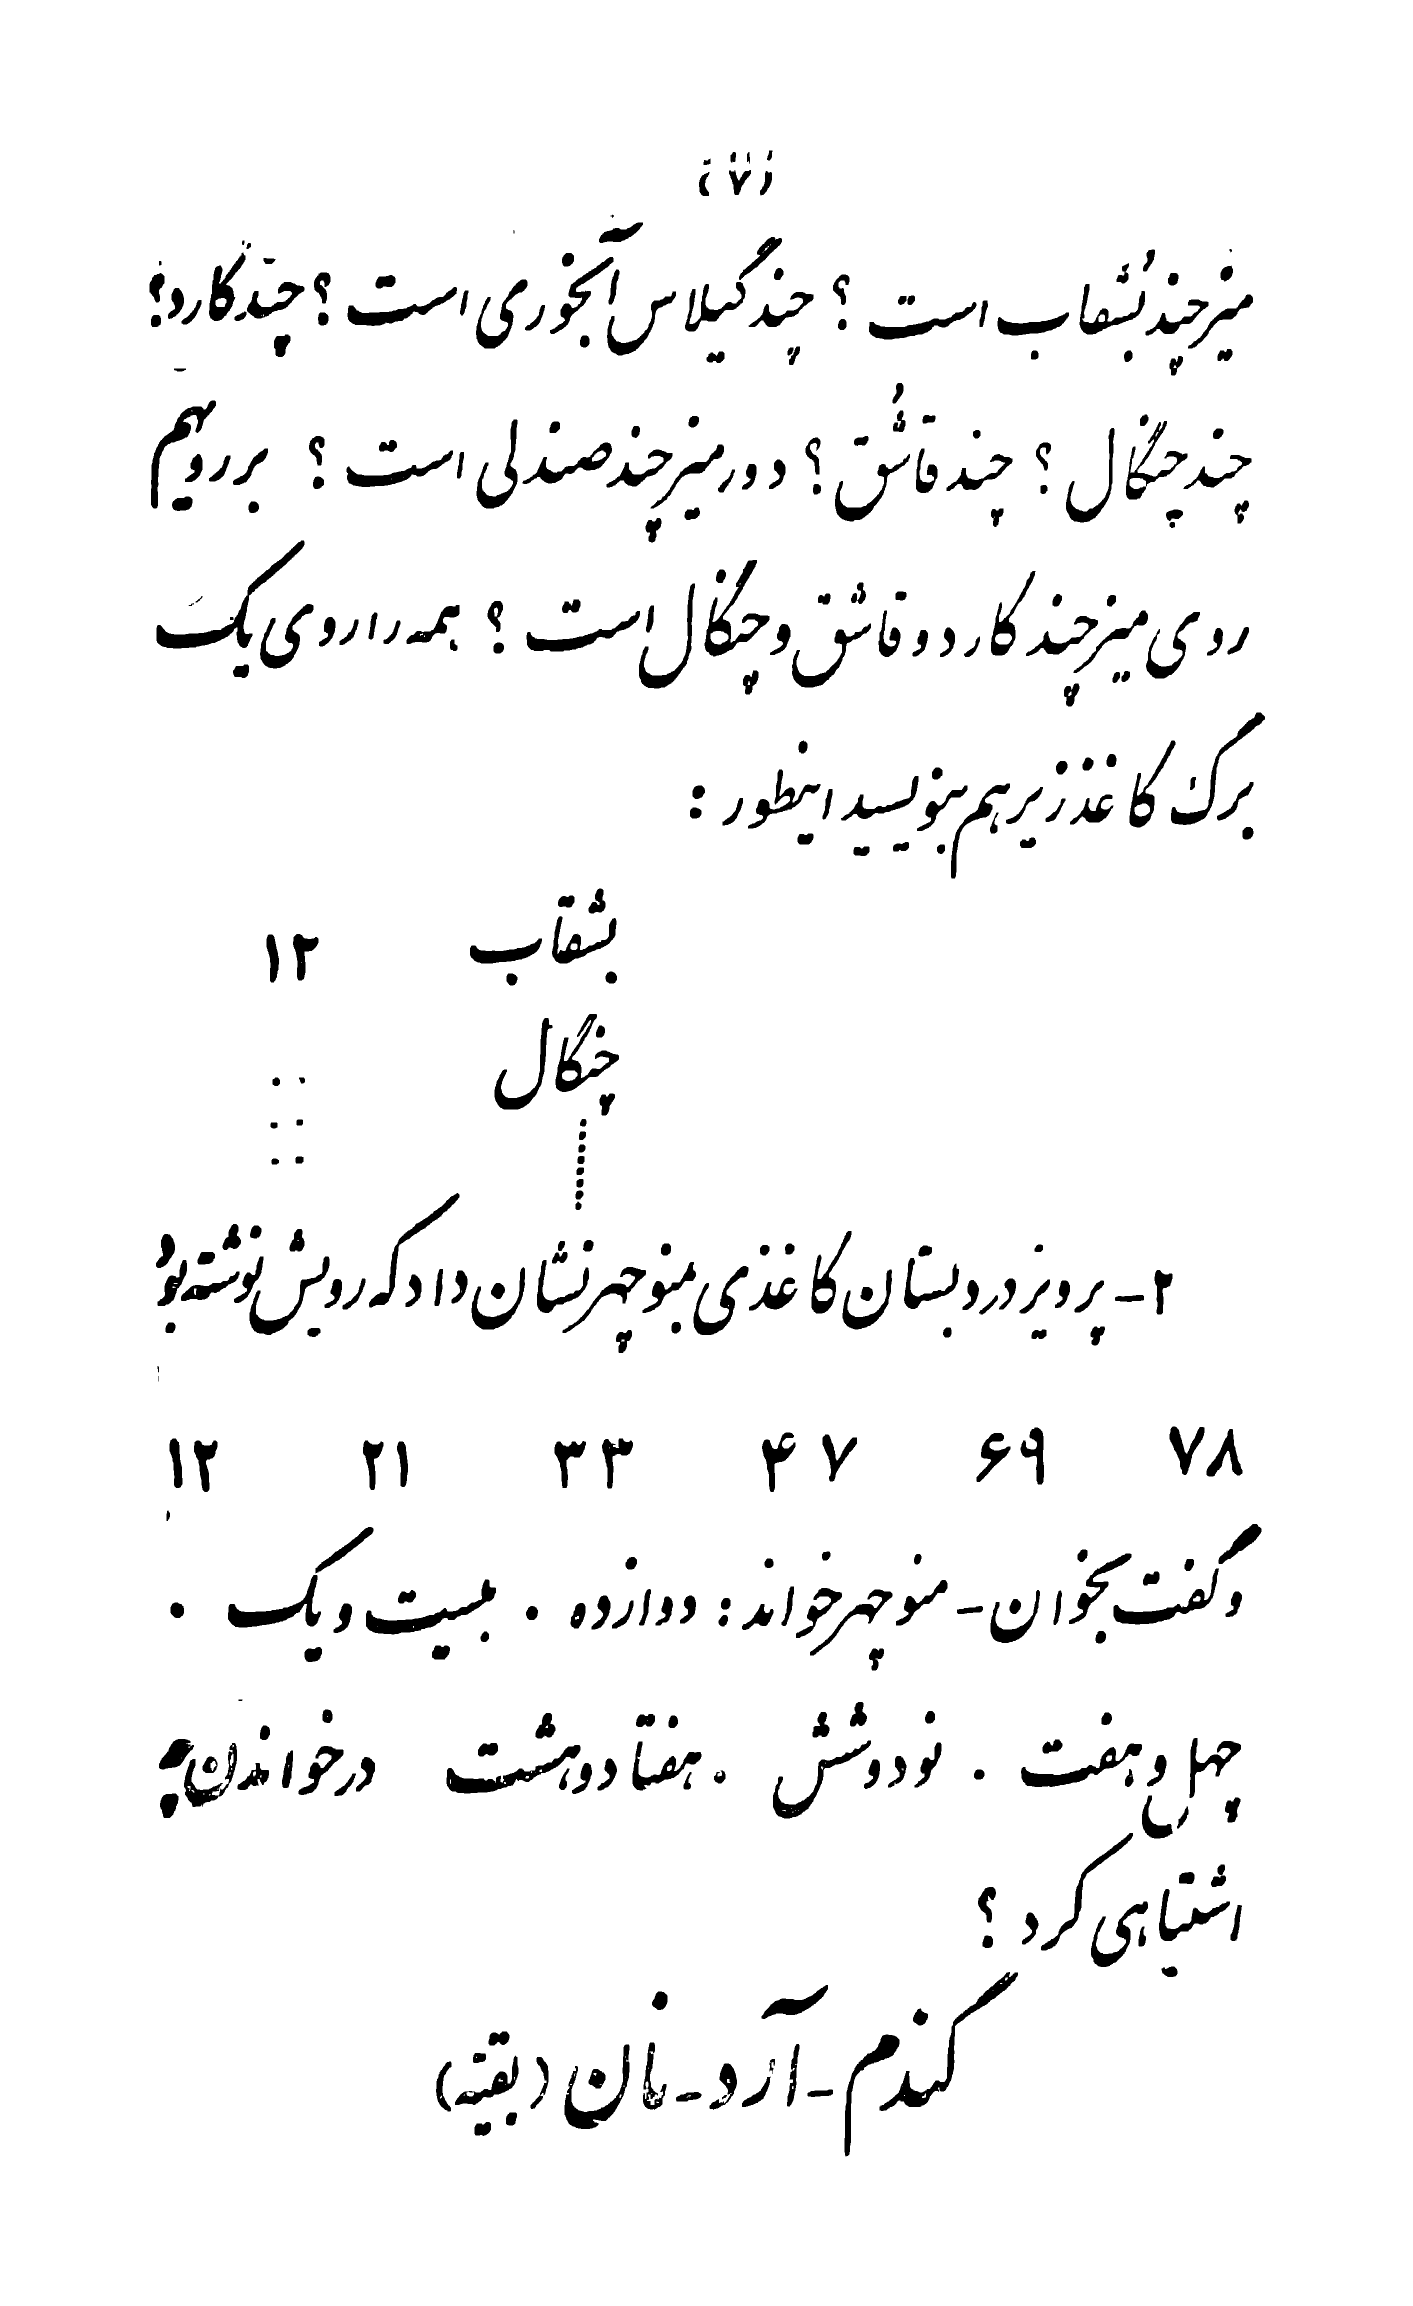 (۷)
میز چند بُشقاب است ؟ چند گیلاس آبخوری است ؟ چند کارد؟
چند چنگال ؟ چند قاشُق ؟ دور میز چند صندلی است ؟ بر رویهم
روی میز چند کارد و قاشق و چنگال است ؟ همه را روی یک
برگ کاغذ زیر هم بنویسید اینطور :
بشقاب ۱۲
چنگال ..
..
..
۲- پرویز در دبستان کاغذی بمنوچهر نشان داد که رویش نوشته بود
۱۲ ۲۱ ۳۳ ۴۷ ۶۹ ۷۸
و گفت بخوان - منوچهر خواند : دوازده . بیست و یک .
چهل و هفت . نود و شش . هفتاد و هشت در خواندن چه
اشتباهی کرد ؟
گندم - آرد - نان (بقیّه)